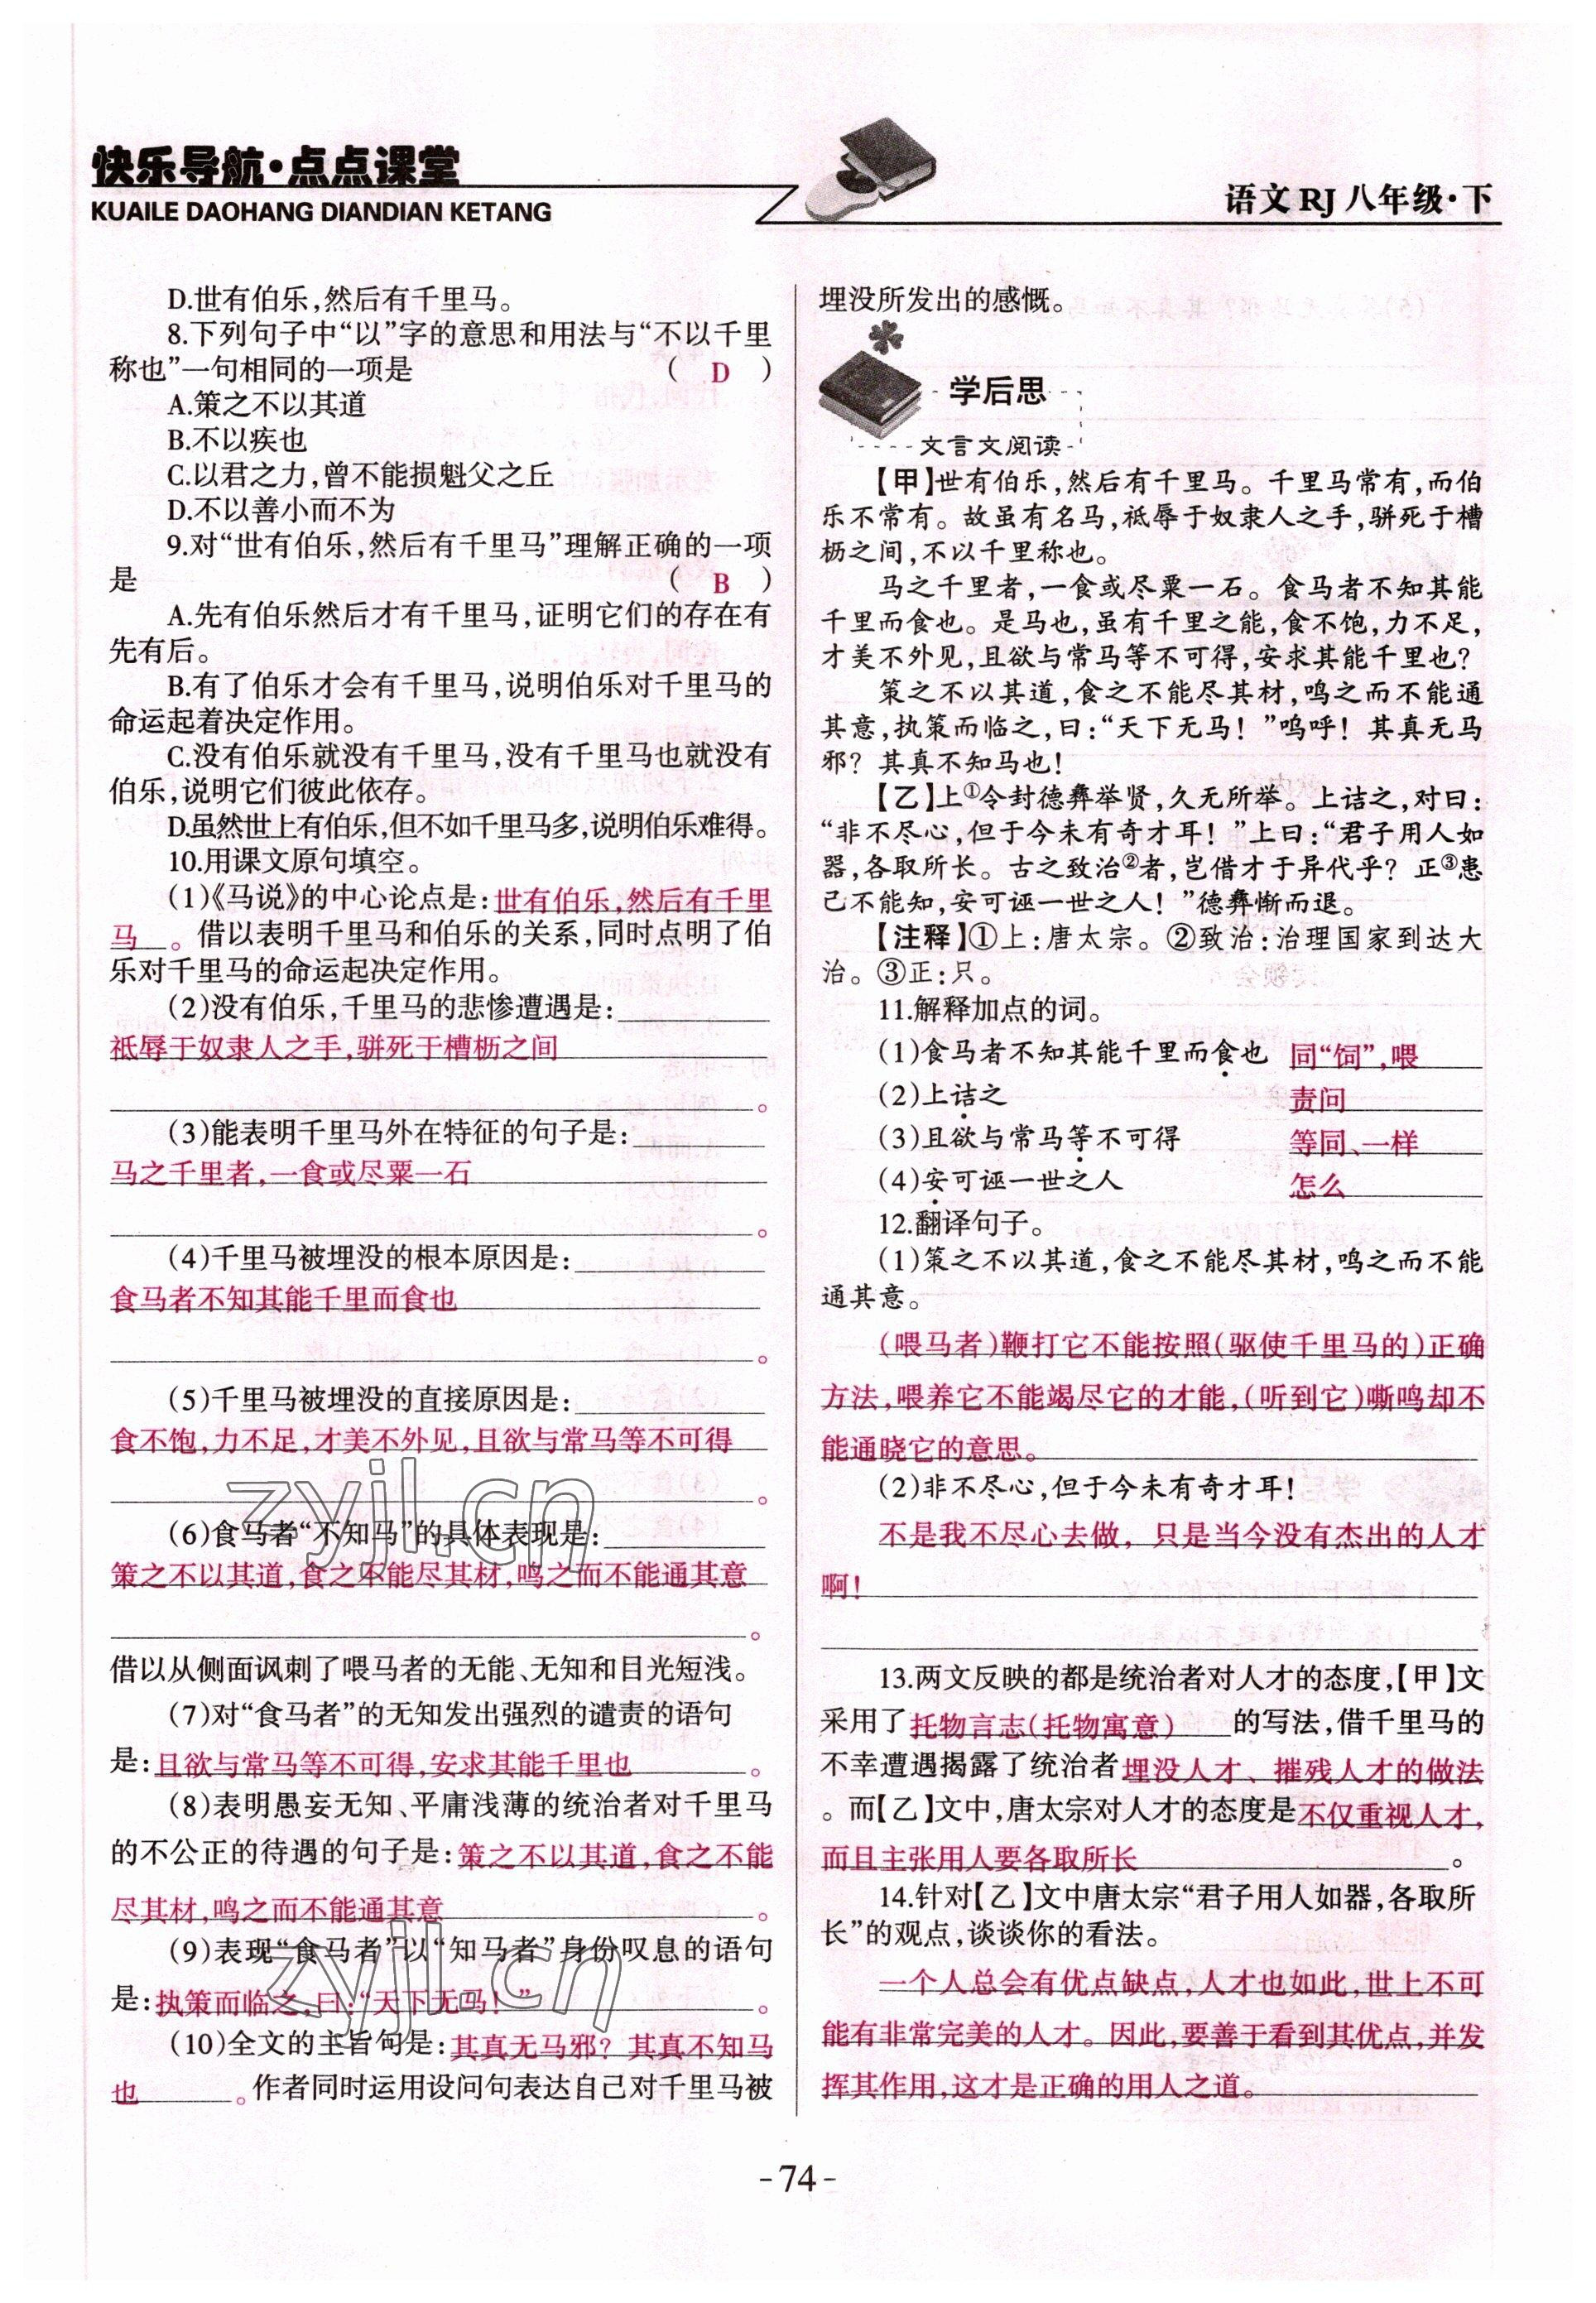 快乐导航·点点课堂
KUAILE DAOHANG DIANDIAN KETANG
语文 RJ 八年级·下
D.世有伯乐,然后有千里马。
8.下列句子中“以”字的意思和用法与“不以千里
称也”一句相同的一项是 ( D )
A.策之不以其道
B.不以疾也
C.以君之力,曾不能损魁父之丘
D.不以善小而不为
9.对“世有伯乐,然后有千里马”理解正确的一项
是 ( B )
A.先有伯乐然后才有千里马,证明它们的存在有
先有后。
B.有了伯乐才会有千里马,说明伯乐对千里马的
命运起着决定作用。
C.没有伯乐就没有千里马,没有千里马也就没有
伯乐,说明它们彼此依存。
D.虽然世上有伯乐,但不如千里马多,说明伯乐难得。
10.用课文原句填空。
(1)《马说》的中心论点是:世有伯乐,然后有千里
马 。借以表明千里马和伯乐的关系,同时点明了伯
乐对千里马的命运起决定作用。
(2)没有伯乐,千里马的悲惨遭遇是:
祗辱于奴隶人之手,骈死于槽枥之间
。
(3)能表明千里马外在特征的句子是:
马之千里者,一食或尽粟一石
。
(4)千里马被埋没的根本原因是:
食马者不知其能千里而食也
。
(5)千里马被埋没的直接原因是:
食不饱,力不足,才美不外见,且欲与常马等不可得
。
(6)食马者“不知马”的具体表现是:
策之不以其道,食之不能尽其材,鸣之而不能通其意
。
借以从侧面讽刺了喂马者的无能、无知和目光短浅。
(7)对“食马者”的无知发出强烈的谴责的语句
是:且欲与常马等不可得,安求其能千里也 。
(8)表明愚妄无知、平庸浅薄的统治者对千里马
的不公正的待遇的句子是:策之不以其道,食之不能
尽其材,鸣之而不能通其意 。
(9)表现“食马者”以“知马者”身份叹息的语句
是:执策而临之,曰:“天下无马!” 。
(10)全文的主旨句是:其真无马邪?其真不知马
也 。作者同时运用设问句表达自己对千里马被
埋没所发出的感慨。
学后思
文言文阅读
【甲】世有伯乐,然后有千里马。千里马常有,而伯
乐不常有。故虽有名马,祗辱于奴隶人之手,骈死于槽
枥之间,不以千里称也。
马之千里者,一食或尽粟一石。食马者不知其能
千里而食也。是马也,虽有千里之能,食不饱,力不足,
才美不外见,且欲与常马等不可得,安求其能千里也?
策之不以其道,食之不能尽其材,鸣之而不能通
其意,执策而临之,曰:“天下无马!”呜呼!其真无马
邪?其真不知马也!
【乙】上①令封德彝举贤,久无所举。上诘之,对曰:
“非不尽心,但于今未有奇才耳!”上曰:“君子用人如
器,各取所长。古之致治②者,岂借才于异代乎?正③患
己不能知,安可诬一世之人!”德彝惭而退。
【注释】①上:唐太宗。②致治:治理国家到达大
治。③正:只。
11.解释加点的词。
(1)食马者不知其能千里而食也 同“饲”,喂
(2)上诘之 责问
(3)且欲与常马等不可得 等同、一样
(4)安可诬一世之人 怎么
12.翻译句子。
(1)策之不以其道,食之不能尽其材,鸣之而不能
通其意。
(喂马者)鞭打它不能按照(驱使千里马的)正确
方法,喂养它不能竭尽它的才能,(听到它)嘶鸣却不
能通晓它的意思。
(2)非不尽心,但于今未有奇才耳!
不是我不尽心去做,只是当今没有杰出的人才
啊!
13.两文反映的都是统治者对人才的态度,【甲】文
采用了 托物言志(托物寓意) 的写法,借千里马的
不幸遭遇揭露了统治者 埋没人才、摧残人才的做法
。而【乙】文中,唐太宗对人才的态度是不仅重视人才,
而且主张用人要各取所长 。
14.针对【乙】文中唐太宗“君子用人如器,各取所
长”的观点,谈谈你的看法。
一个人总会有优点缺点,人才也如此,世上不可
能有非常完美的人才。因此,要善于看到其优点,并发
挥其作用,这才是正确的用人之道。
zyjl.cn
zyjl.cn
-74-